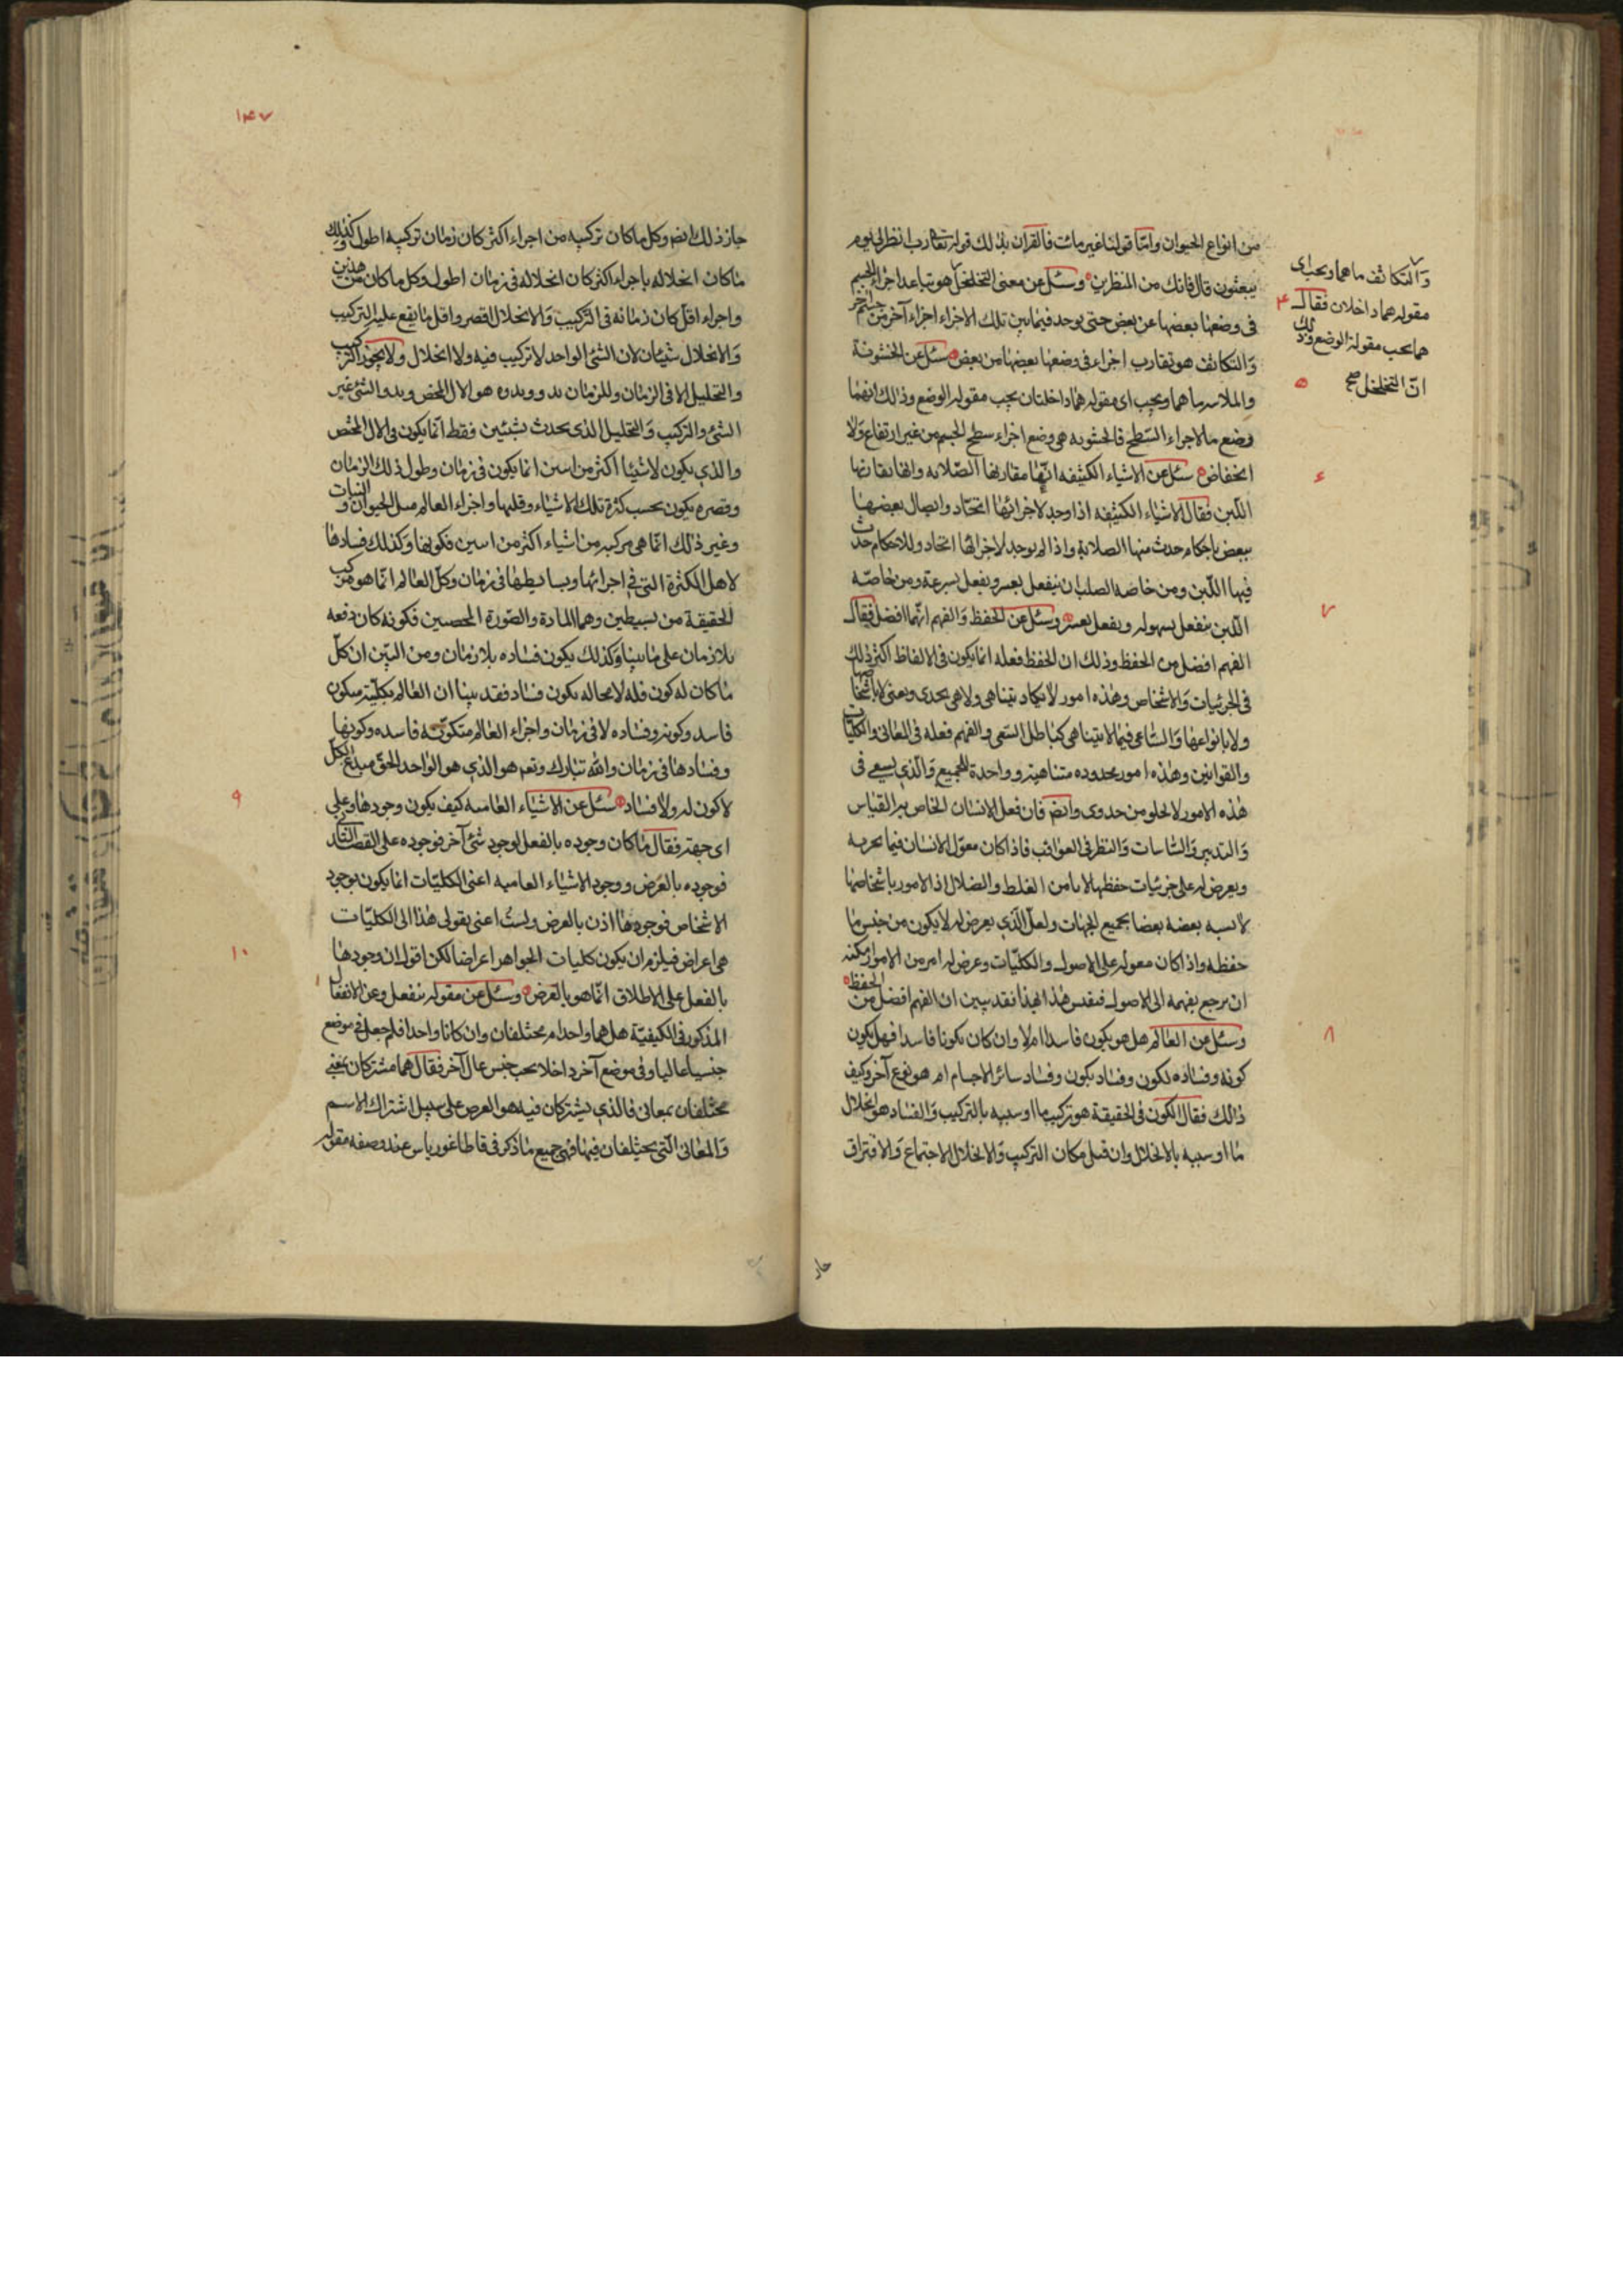 من انواع الحيوان وامّا قولنا غير مائت فالقران بذلك قوله تعالى رب انظرنى الى يوم
يبعثون قال فانك من المنظرين وسئل عن معنى التخلخل هو تباعد اجزاء الجسم
فى وضعها بعضها عن بعض حتى يوجد فيما بين تلك الاجزاء اجزاء آخر من جسم آخر
وَالتكاثف هو تقارب اجزاء فى وضعها بعضها من بعض سئل عن الخشونة
والملاسه ما هما ويجب اى مقوله هما داخلتان يجب مقوله الوضع وذالك انهما
وضع ما لاجزاء السّطح فالخشونه هى وضع اجزاء سطح الجسم من غير ارتفاع وَلا
انخفاض سئل عن الاشياء الكثيفه انّها مقاربها الصّلابه وانها بقاربها
اللّين فقال الاشياء الكثيفه اذا وجد لاجزائها اتحّاد واتصال بعضها
ببعض باحكام حدث منها الصلابة واذا لم يوجد لاجزائها اتحاد وللاحكام حدث
فيها اللّين ومن خاصه الصلب ان ينفعل بعسر ويفعل بسرعة ومن خاصّه
اللّين ينفعل بسهوله ويفعل بعسر وسئل عن الحفظ وَالفهم ايّهما افضل فقال
الفهم افضل من الحفظ وذلك ان الحفظ فعله انما يكون فى الالفاظ اكثر ذلك
فى الجزئيات وَالاشخاص وهذه امور لا يكاد يتناهى ولا هى يجدى ويغنى لا باشخاصها
ولا بانواعها وَالسّاعى فيما لا يتناهى كباطل السّعى والفهم فعله فى المعانى والكليّات
والقوانين وهذه امور محدوده متناهية وواحدة للجميع وَالّذى يسعى فى
هذه الامور لا يخلو من جدوى وايضم فان فعل الانسان الخاص به القياس
وَالتدبير وَالسّياسات وَالنظر فى العواقب فاذا كان معوّل الانسان فيما يجربه
ويعرض له على جزئيات حفظها لا يامن الغلط والضلال اذ الامور باشخاصها
لا يشبه بعضه بعضا بجميع الجهات ولعل الّذى يعرض له لا يكون من جنس ما
حفظه واذا كان معوله على الاصول والكليّات وعرض له امر من الامور امكنه
ان يرجع بفهمه الى الاصول فيقيس هذا بهذا فقد يتبين ان الفهم افضل من الحفظ
وسئل عن العالم هل هو يكون فاسد ام لا وان كان يكونا فاسدا فهل يكون
كونه وفساده لكون وفساد يكون وفساد سائر الاجسام ام هو نوع آخر وكيف
ذالك فقال الكون فى الحقيقة هو تركيب ما او سببه بالتركيب وَالفساد هو انحلال
ما او سببه بالانحلال وان قيل مكان التركيب وَالانحلال الاجتماع وَالافتراق
وَالتكاثف ما هما ويجب اى
مقوله هما داخلان فقال
هما يجب مقولة الوضع وذلك
انّ التخلخل صح
۴
۵
۶
۷
۸
جاز
۱۴۷
جاز ذلك ايضم وكل ما كان تركيبه من اجزاء اكثر كان زمان تركيبه اطول وكذلك
ما كان انحلاله باجزاء اكثر كان انحلاله فى زمان اطول وكل ما كان من هذين
واجزاء اقل كان زمانه فى التركيب وَالانحلال اقصر واقل ما يقع عليه التركيب
وَالانحلال شيئان لان الشئ الواحد لا تركيب فيه ولا انحلال ولا يجوز التركيب
والتحليل الا فى الزمان وللزمان بدو وبدوه هو الان المحض وبدو الشئ غير
الشئ والتركيب وَالتحليل الذى يحدث بشيئين فقط انّما يكون فى الان المحض
والذى يكون لاشياء اكثر من اسين انما يكون فى زمان وطول ذلك الزمان
وقصره يكون بحسب كثرة تلك الاشياء وقلتها واجزاء العالم مثل الحيوان والنبات
وغير ذلك انّما هى مركبه من اشياء اكثر من اسين فكونها وكذلك فسادها
لاهل الكثرة التى فى اجزائها وبسايطها فى زمان وكل العالم انّما هو مركب
الحقيقة من بسيطين وهما المادة والصّورة المحصين فكونه كان دفعه
بلا زمان على ما بينا وكذلك يكون فساده بلا زمان ومن البيّن ان كلّ
ما كان له كون فله لا محاله يكون فساد فقد بينا ان العالم بكليّته متكون
فاسد وكونه وفساده لا فى زمان واجزاء العالم متكوّنه فاسده وكونها
وفسادها فى زمان والله تبارك وتعم هو الذى هو الواحد الحق مبدع الكلّ
لا كون له ولا فساد سئل عن الاشياء العاميه كيف يكون وجودها وعلى
اى جهة فقال ما كان وجوده بالفعل لوجود شئ آخر فوجوده على القصد الثانى
فوجوده بالعرض ووجود الاشياء العاميه اعنى الكليّات انما يكون بوجود
الاشخاص فوجودها اذن بالعرض ولستُ اعنى بقولى هذا الى الكليّات
هى اعراض فيلزم ان يكون كليات الجواهر اعراضا لكن اقول ان وجودها
بالفعل على الاطلاق انّما هو بالعرض وسئل عن مقوله ينفعل وعن الانفعال
المذكور فى الكيفيّة هل هما واحد ام مختلفان وان كانا واحدا فلم جعل فى موضع
جنسيا عاليا وفى موضع آخر داخلا يجب جنس عال آخر فقال هما مشتركان بمعنى
مختلفان بمعانى فالذى يشتركان فيه هو العرض على سبيل اشتراك الاسم
وَالمعانى الّتى يختلفان فيها فهى جميع ما ذكر فى قاطاغورياس عند وصفه مقوله
۹
۱۰